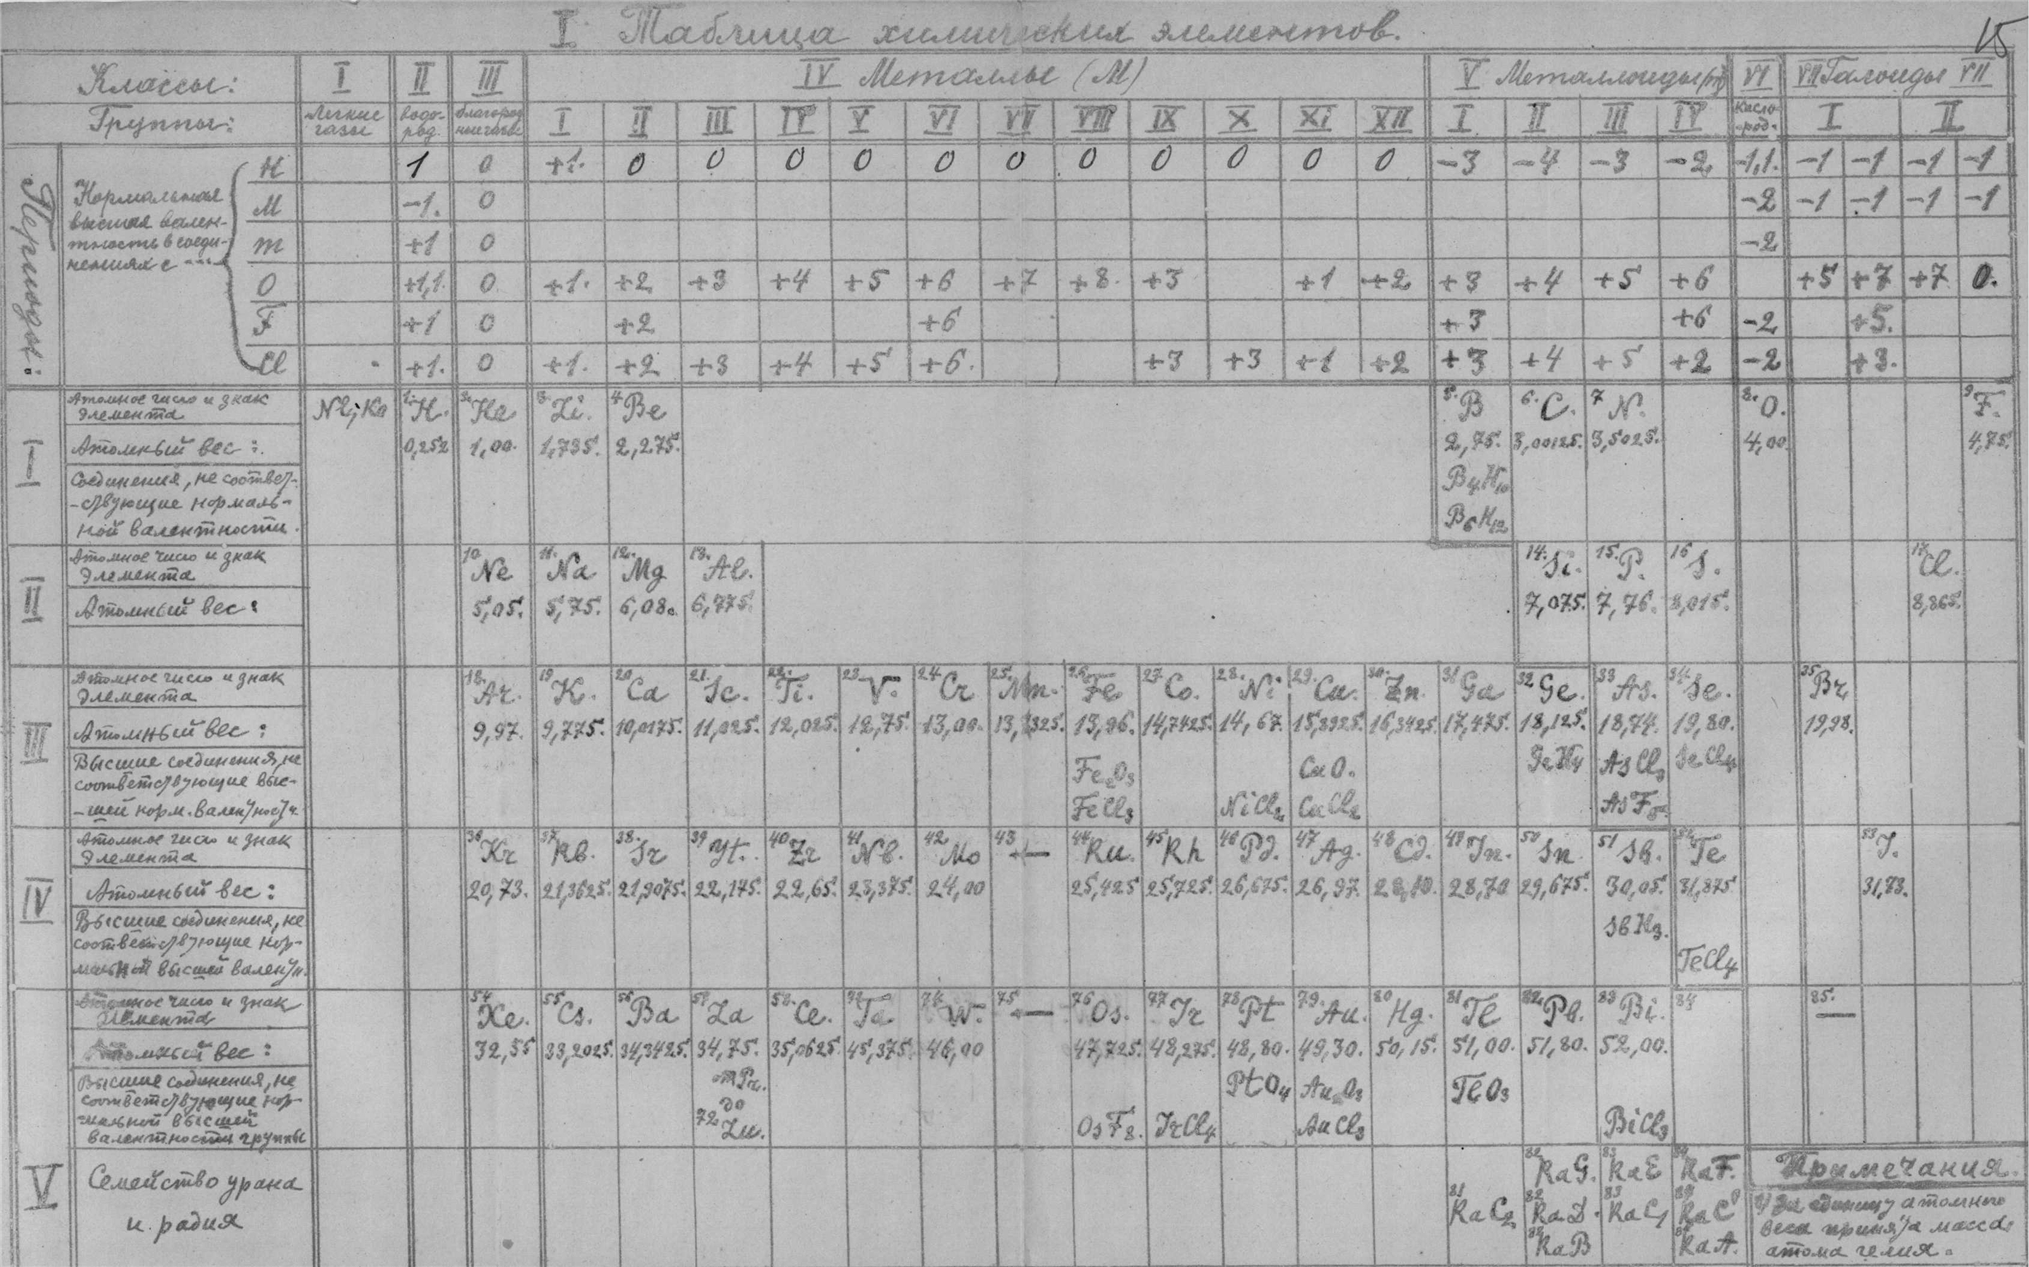 I. Таблица химических элементов.
15
Классы: I II III IV Металлы (М) V Металлоиды (m) VI VII Галоиды VII
Группы: Легкие газы Водо-род. благород ные газы I II III IV V VI VII VIII IX X XI XII I II III IV Кисло-род. I II
Периоды:
Нормальная
высшая вален-
тность в соеди-
нениях с
H 1 0 +1. 0 0 0 0 0 0 0 0 0 0 0 -3 -4 -3 -2 -1,1. -1 -1 -1 -1
М -1. 0 -2 -1 -1 -1 -1
m +1 0 -2
O +1,1. 0. +1. +2 +3 +4 +5 +6 +7 +8. +3 +1 +2 +3 +4 +5 +6 +5 +7 +7 0.
F +1 0 +2 +6 +3 +6 -2 +5.
Cl +1. 0 +1. +2 +3 +4 +5 +6. +3 +3 +1 +2 +3 +4 +5 +2 -2 +3.
I
Атомное число и знак
элемента
1. H. 2. He 3. Li. 4. Be 5. B 6. C. 7 N. 8. O. 9 F.
Атомный вес: 0,252 1,00. 1,735. 2,275. 2,75. 3,00125. 3,5025. 4,00 4,75.
Соединения, не соответ-
-ствующие нормаль-
ной валентности.
B4H10
B6H12
II
Атомное число и знак
элемента
10 Ne 11. Na 12. Mg 13. Al. 14. Si. 15. P. 16 S. 17 Cl.
Атомный вес: 5,05. 5,75. 6,08. 6,775. 7,075. 7,76. 8,015. 8,865.
III
Атомное число и знак
элемента
18. Ar. 19 K. 20 Ca 21. Sc. 22. Ti. 23. V. 24 Cr 25. Mn. 26. Fe 27. Co. 28. Ni 29. Cu. 30. Zn. 31 Ga 32 Ge. 33 As. 34. Se. 35 Br.
Атомный вес: 9,97. 9,775. 10,0175. 11,025. 12,025. 12,75. 13,00. 13,96. 14,7425. 14,67. 15,8925. 16,3425. 17,475. 18,125. 18,74. 19,80. 19,98.
Высшие соединения, не
соответствующие выс-
-шей норм. валентности
Fe2O3 CuO. GeH4 AsCl3 SeCl4
FeCl3 NiCl2 CuCl2 AsF5.
IV
Атомное число и знак
элемента
36 Kr 37 Rb. 38. Sr 39 Yt. 40 Zr 41 Nb. 42 Mo 43 — 44 Ru. 45 Rh 46 Pd. 47 Ag. 48 Cd. 49 In. 50 Sn 51 Sb. 52 Te 53 J.
Атомный вес: 20,73. 21,3625. 21,9075. 22,175. 22,65. 23,375. 24,00 25,425 25,725. 26,675. 26,97. 28,10. 28,70 29,675. 30,05. 31,875 31,73.
Высшие соединения, не
соответствующие нор-
мальной высшей валентн.
SbH3.
TeCl4
54 Xe. 55 Cs. 56 Ba 57 La 58. Ce. 73. Ta. 74. W. 75 — 76 Os. 77 Ir 78 Pt 79. Au. 80 Hg. 81 Tl 82. Pb. 83 Bi. 84 85. —
Атомное число и знак
элемента
Атомный вес: 32,55 33,2025. 34,3425. 34,75. 35,0625. 45,375. 46,00 47,725. 48,275. 48,80. 49,30. 50,15. 51,00. 51,80. 52,00.
Высшие соединения, не
соответствующие нор-
мальной высшей
валентности группы
от Pr.
до
72 Lu.
PtO4 Au2O3 TlO3
OsF8. IrCl4 AuCl3 BiCl3
V
Семейство урана
и радия
82 RaG. 83 RaE 84 RaF.
81 RaC2 82 RaD. 83 RaC1 84 RaC'
82 RaB 84 RaA.
Примечания.
1) За единицу атомного
веса принята масса
атома гелия.